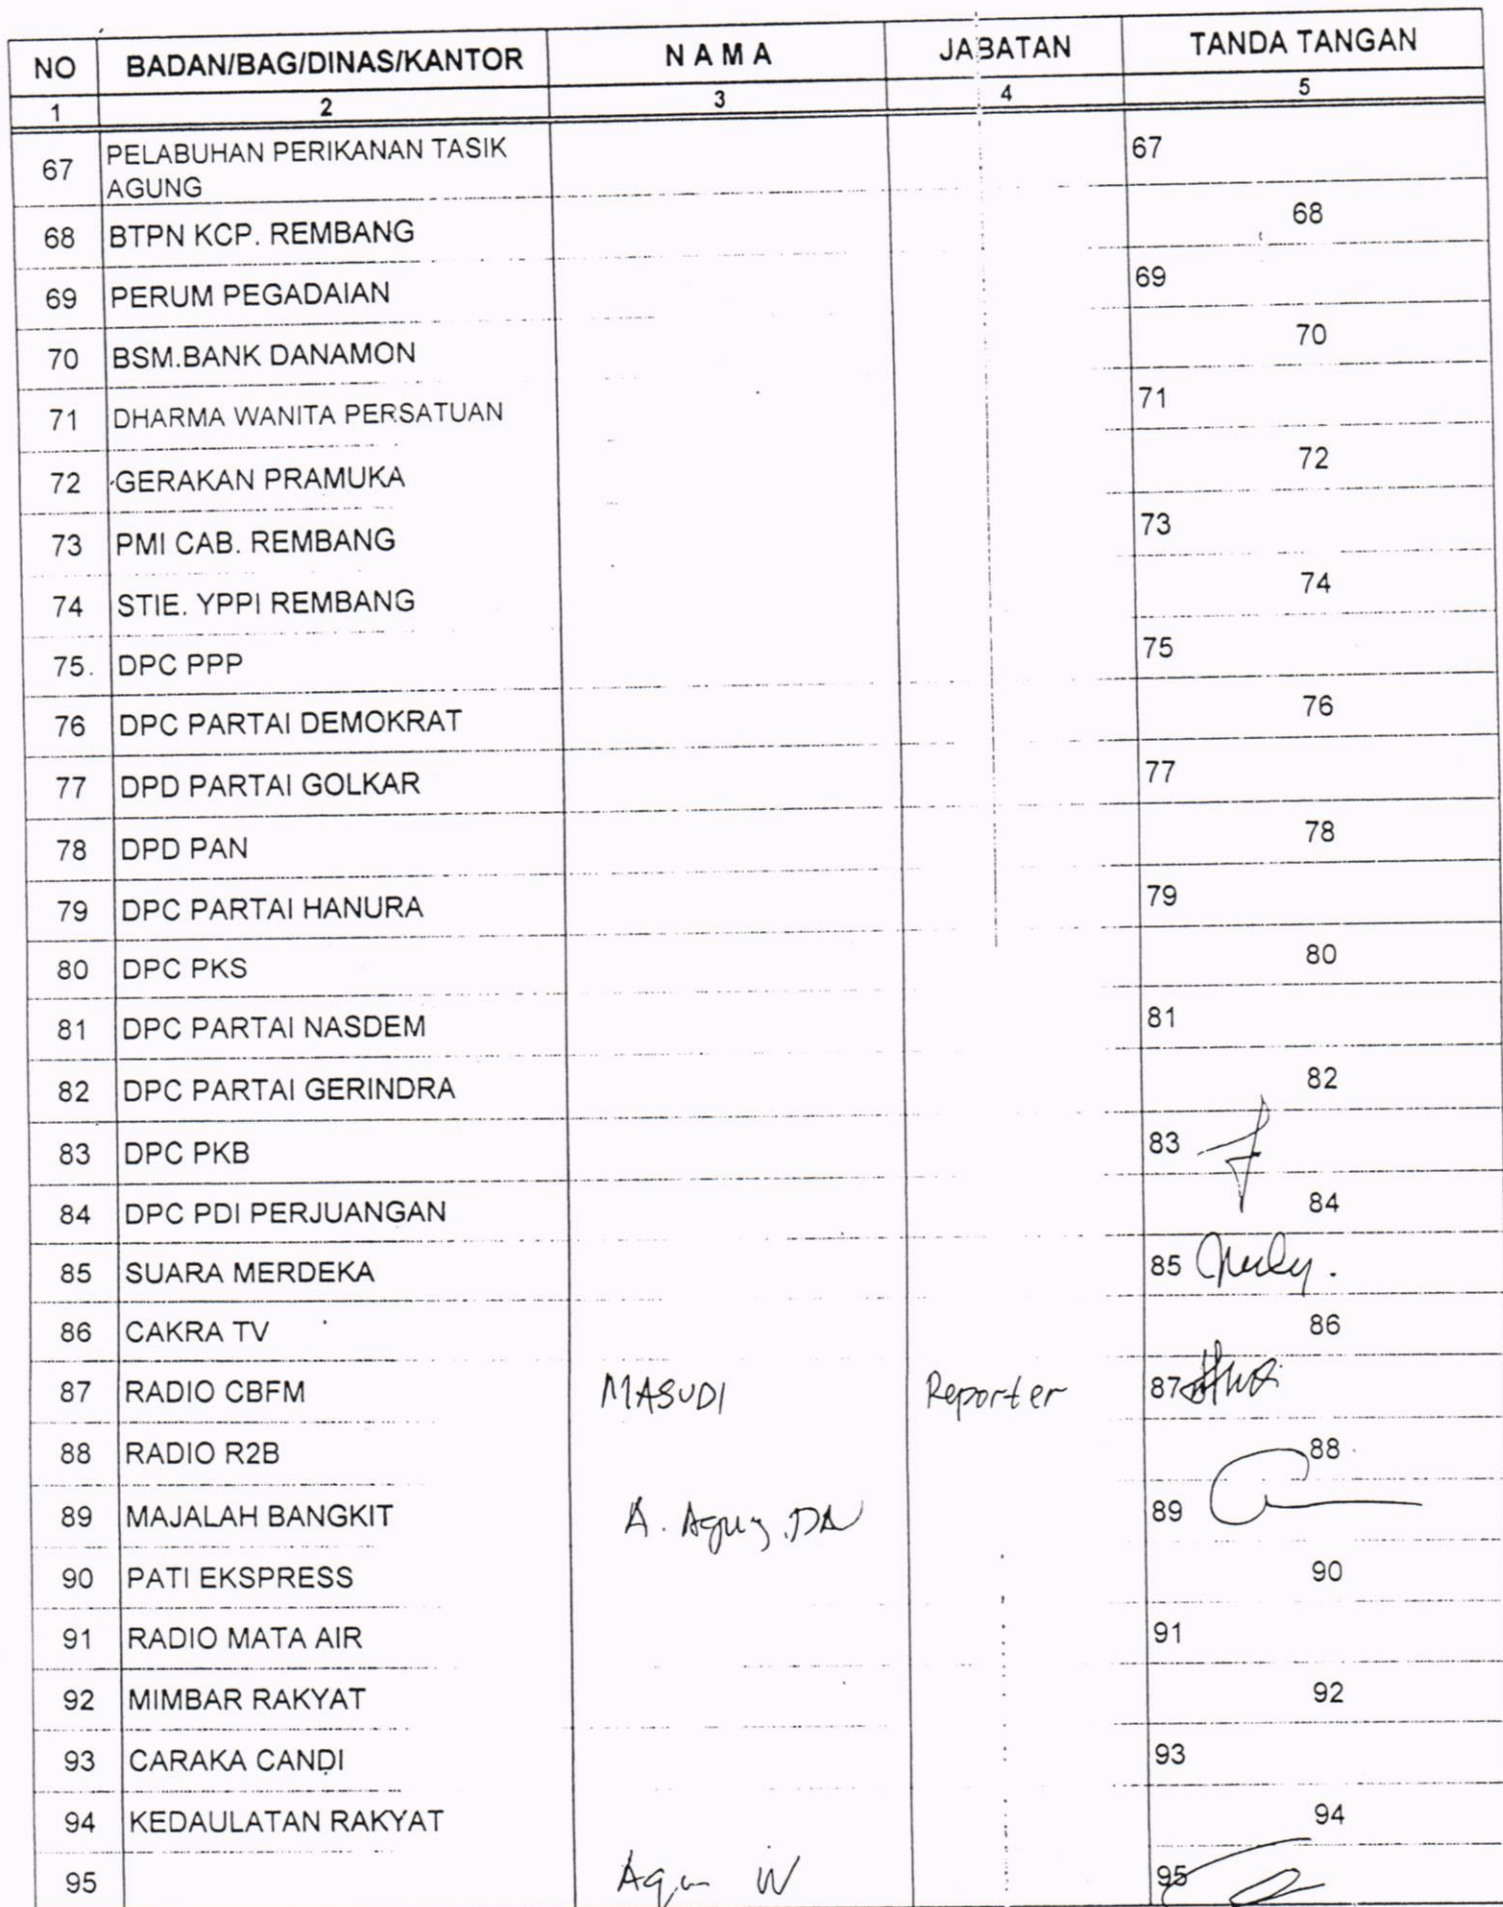 NO BADAN/BAG/DINAS/KANTOR N A M A JABATAN TANDA TANGAN
1 2 3 4 5
67 PELABUHAN PERIKANAN TASIK 67
AGUNG
68 BTPN KCP. REMBANG 68
69 PERUM PEGADAIAN 69
70 BSM.BANK DANAMON 70
71 DHARMA WANITA PERSATUAN 71
72 GERAKAN PRAMUKA 72
73 PMI CAB. REMBANG 73
74 STIE. YPPI REMBANG 74
75. DPC PPP 75
76 DPC PARTAI DEMOKRAT 76
77 DPD PARTAI GOLKAR 77
78 DPD PAN 78
79 DPC PARTAI HANURA 79
80 DPC PKS 80
81 DPC PARTAI NASDEM 81
82 DPC PARTAI GERINDRA 82
83 DPC PKB 83
84 DPC PDI PERJUANGAN 84
85 SUARA MERDEKA 85
86 CAKRA TV 86
87 RADIO CBFM MASUDI Reporter 87
88 RADIO R2B 88
89 MAJALAH BANGKIT A. Agung DA 89
90 PATI EKSPRESS 90
91 RADIO MATA AIR 91
92 MIMBAR RAKYAT 92
93 CARAKA CANDI 93
94 KEDAULATAN RAKYAT 94
95 W 95